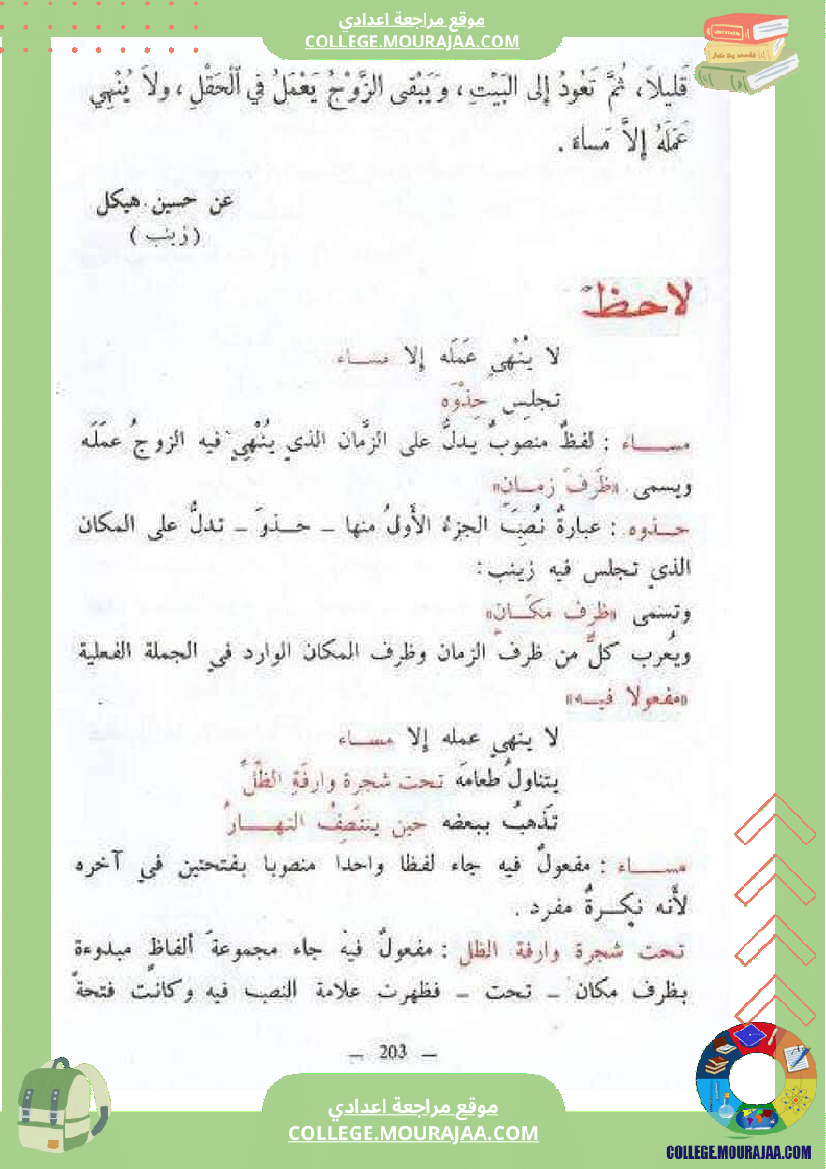 موقع مراجعة اعدادي
COLLEGE.MOURAJAA.COM
قَليلاً، ثُمَّ تَعُودُ إلى البَيْتِ، وَيَبْقى الزَّوْجُ يَعْمَلُ في اْلحَقْلِ، ولاَ يُنْهِي
عَمَلَهُ إلاَّ مَساءً.
عن حسين هيكل
(زينب)
لاحظ
لا يُنْهي عَمَلَه إلا مساء
تجلس حِذْوَه
مساء : لفظٌ منصوبٌ يدلُّ على الزَّمان الذي يُنْهِي فيه الزوجُ عمَلَه
ويسمى «ظَرفَ زمان»
حذوه : عبارةٌ نُصِبَ الجزءُ الأَولُ منها – حذوَ – تدلُّ على المكان
الذي تجلس فيه زينب :
وتسمى «ظرف مكَان»
ويُعرب كلٌّ من ظرف الزمان وظرف المكان الوارد في الجملة الفعلية
«مفعولا فيه»
لا ينهي عمله إلا مساء
يتناولُ طعامَه تحت شجرة وارفَةِ الظّلِّ
تَذْهبُ ببعضه حين ينتَصِفُ النهارُ
مساء : مفعولٌ فيه جاء لفظا واحدا منصوبا بفتحتين في آخره
لأَنه نكرةٌ مفرد .
تحت شجرة وارفة الظل : مفعولٌ فيه جاء مجموعةَ ألفاظٍ مبدوءة
بظرف مكان – تحت – فظهرت علامة النصب فيه وكانت فتحةً
– 203 –
موقع مراجعة اعدادي
COLLEGE.MOURAJAA.COM
COLLEGE.MOURAJAA.COM